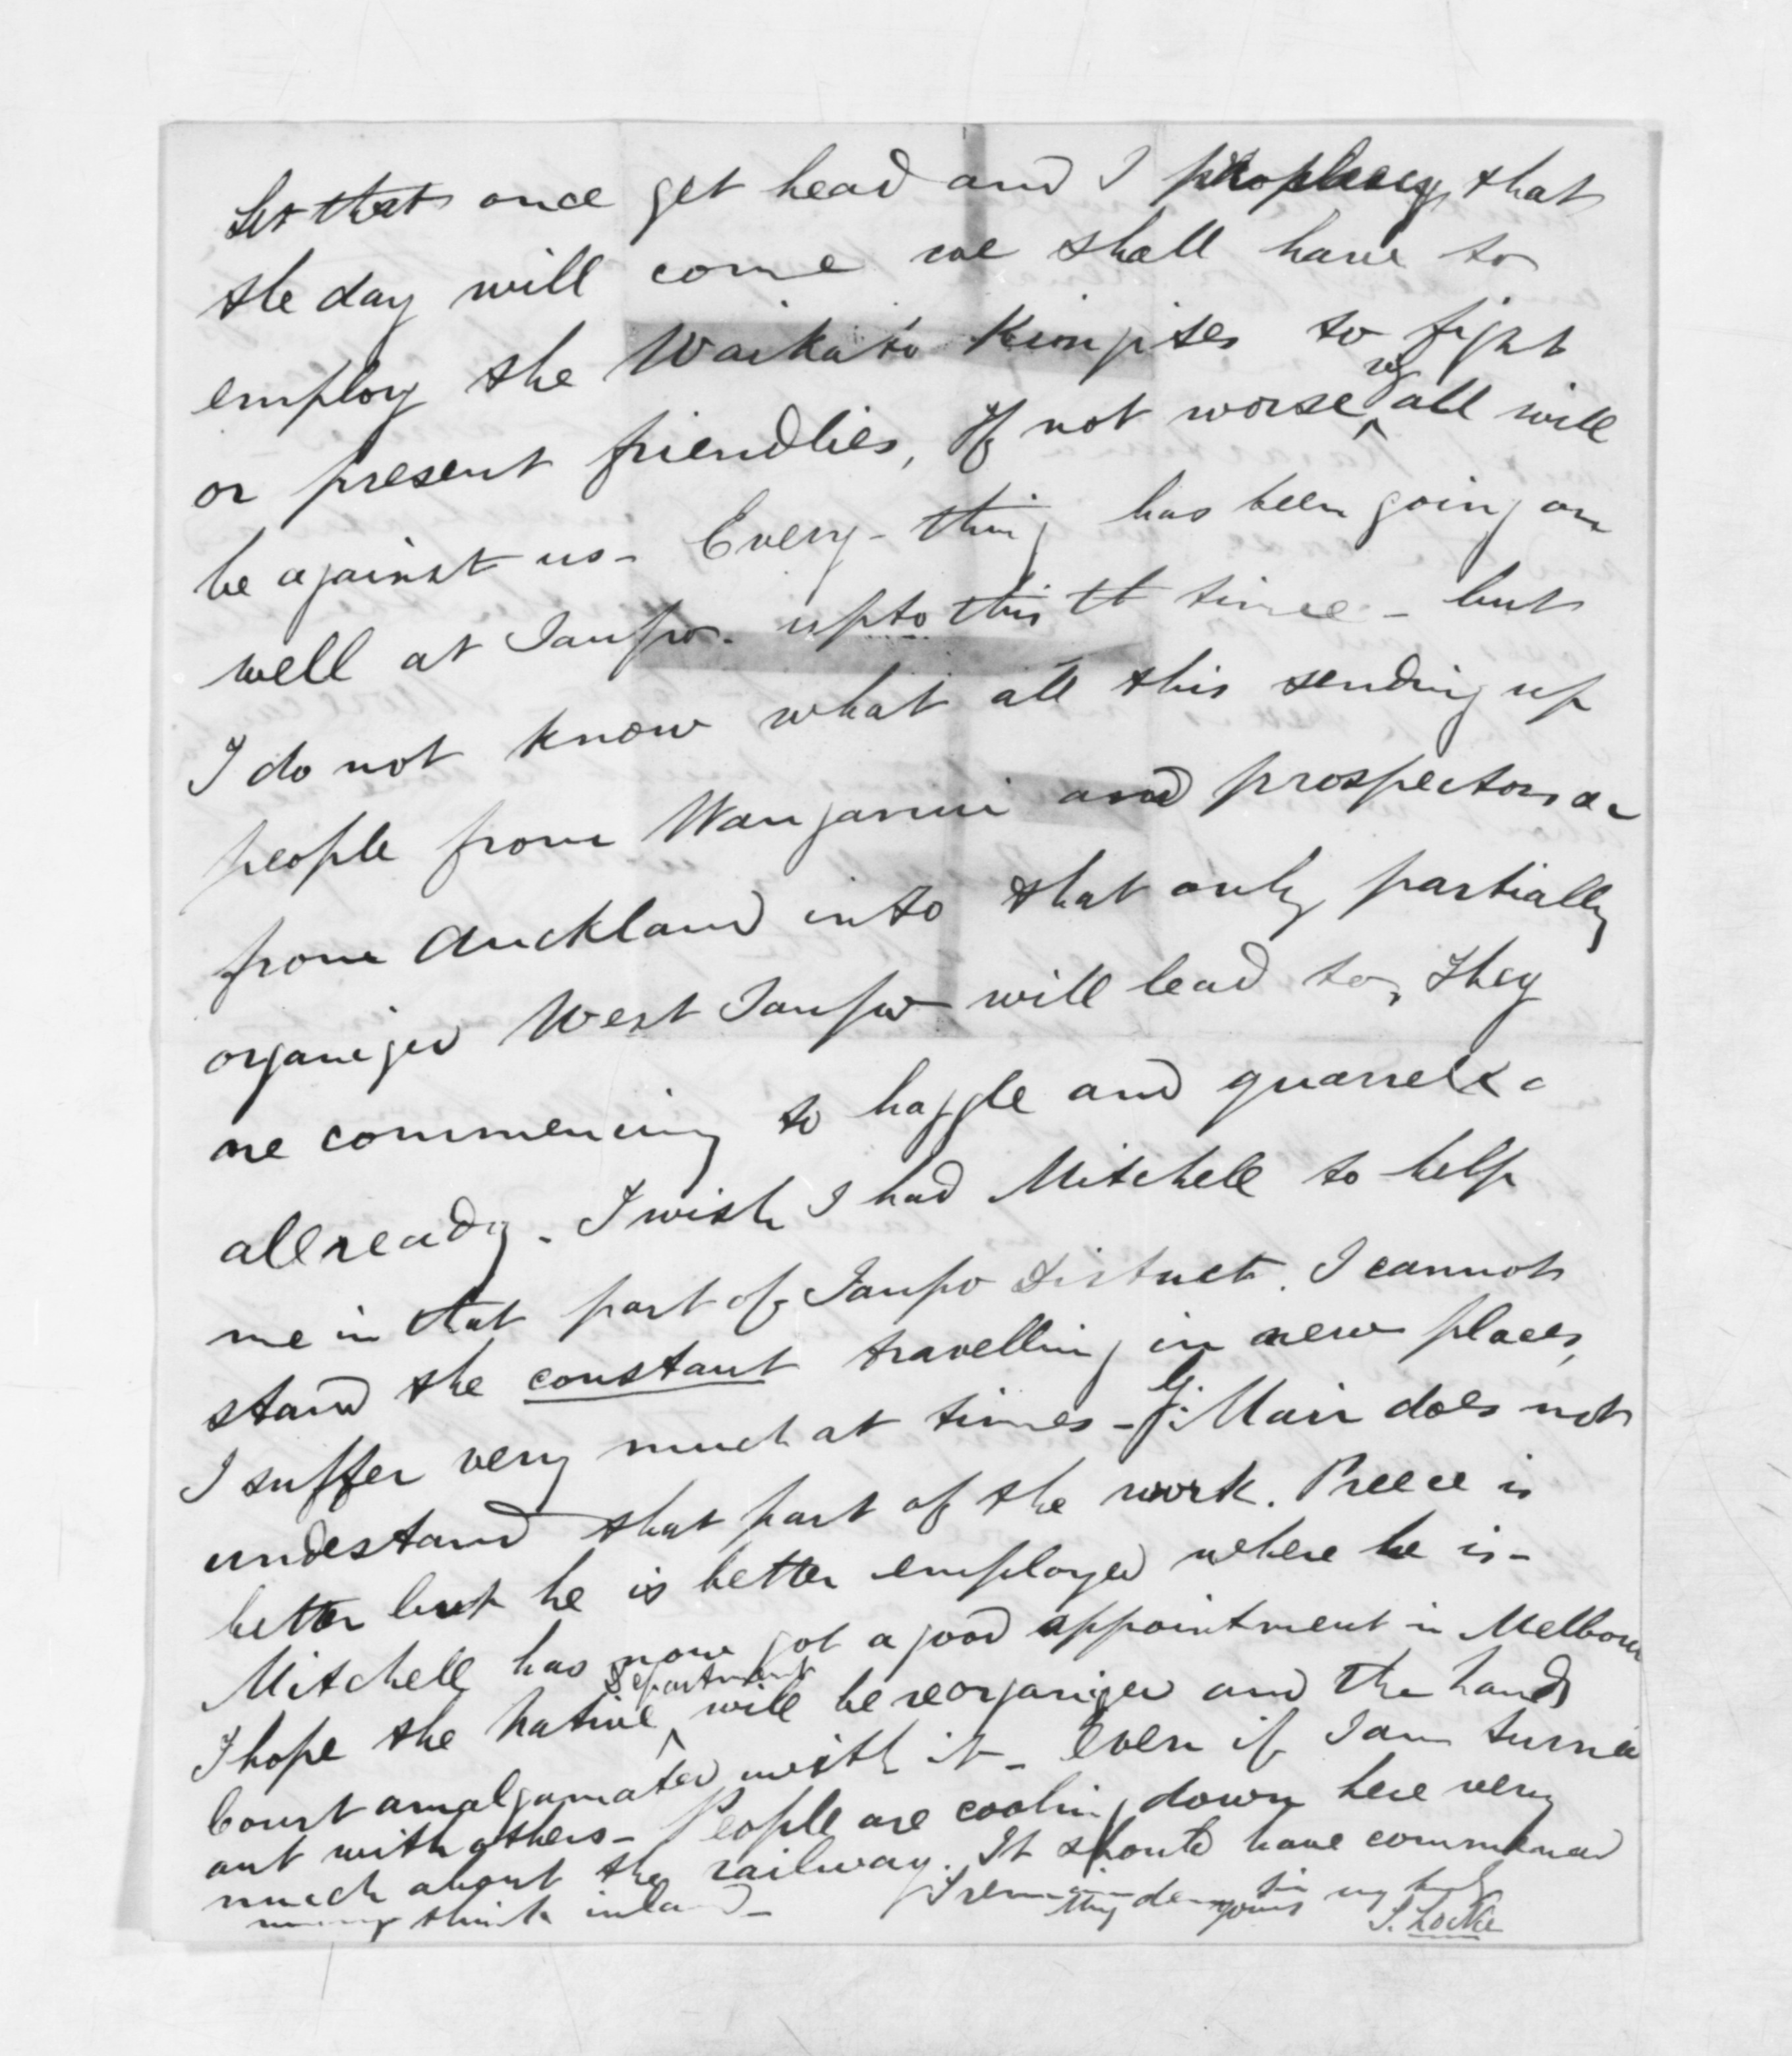 Let that once get head and I prophecy that
the day will come we shall have to
employ the Waikato Kingites to fight
or present friendlies, If not worse, ^ all will
be against us - Every-thing has been going on
well at Taupo. up to this tt time - but
I do not know what all this sending up
people from Wanganui and prospectors &c
from Auckland into that only partially
organized West Taupo will lead to, they
are commencing to haggle and quarrel &c
allready. I wish I had Mitchell to help
me in that part of Taupo district. I cannot
stand the constant travelling in new places,
I suffer very much at times - G. Mair does not
undestand that part of the work. Preece is
better but he is better employed where he is -
Mitchell has now got a good appointment in Melbour
I hope the Native ^ Department will be reorganized and the Lands
Court amalgamated with it - even if I am turned
out with others - People are cooling down here very
much about the railway. It should have commenced
think inland -
I remain my dear Sir
yours
S. Locke